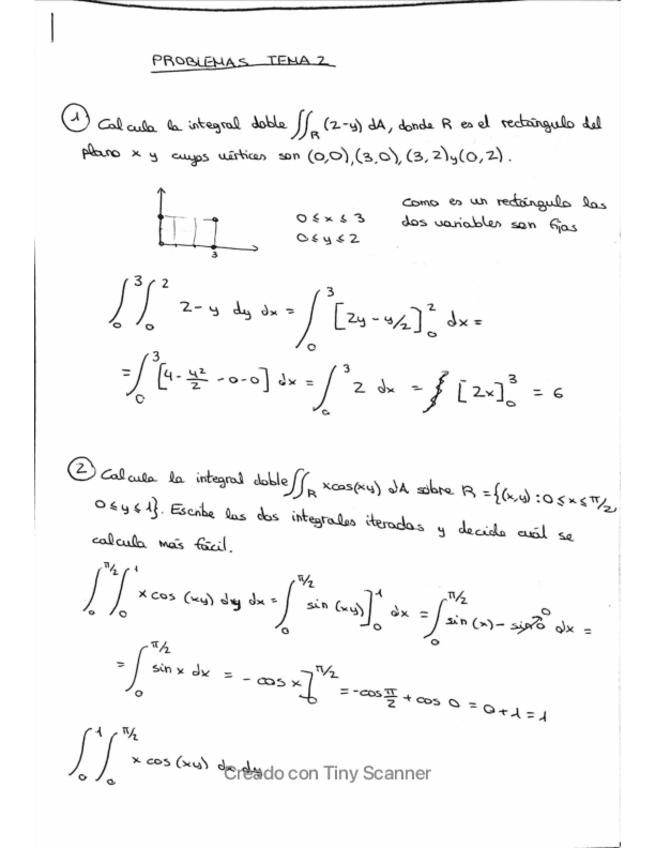 PROBLEMAS TEMA 2
① Calcula la integral doble ∬_R (2-y) dA, donde R es el rectángulo del
plano x y cuyos vértices son (0,0), (3,0), (3,2) y (0,2).
0 ≤ x ≤ 3
0 ≤ y ≤ 2
Como es un rectángulo las
dos variables son fijas
3
∫_0^3 ∫_0^2 2-y dy dx = ∫_0^3 [2y - y/2]_0^2 dx =
= ∫_0^3 [4 - 4²/2 - 0 - 0] dx = ∫_0^3 2 dx = [2x]_0^3 = 6
② Calcula la integral doble ∬_R xcos(xy) dA sobre R = {(x,y) : 0 ≤ x ≤ π/2,
0 ≤ y ≤ 1}. Escribe las dos integrales iteradas y decide cuál se
calcula más fácil.
∫_0^{π/2} ∫_0^1 x cos (xy) dy dx = ∫_0^{π/2} sin (xy)]_0^1 dx = ∫_0^{π/2} sin (x) - sin 0 dx =
= ∫_0^{π/2} sin x dx = - cos x]_0^{π/2} = -cos π/2 + cos 0 = 0+1=1
∫_0^1 ∫_0^{π/2} x cos (xy) dx dy
Creado con Tiny Scanner